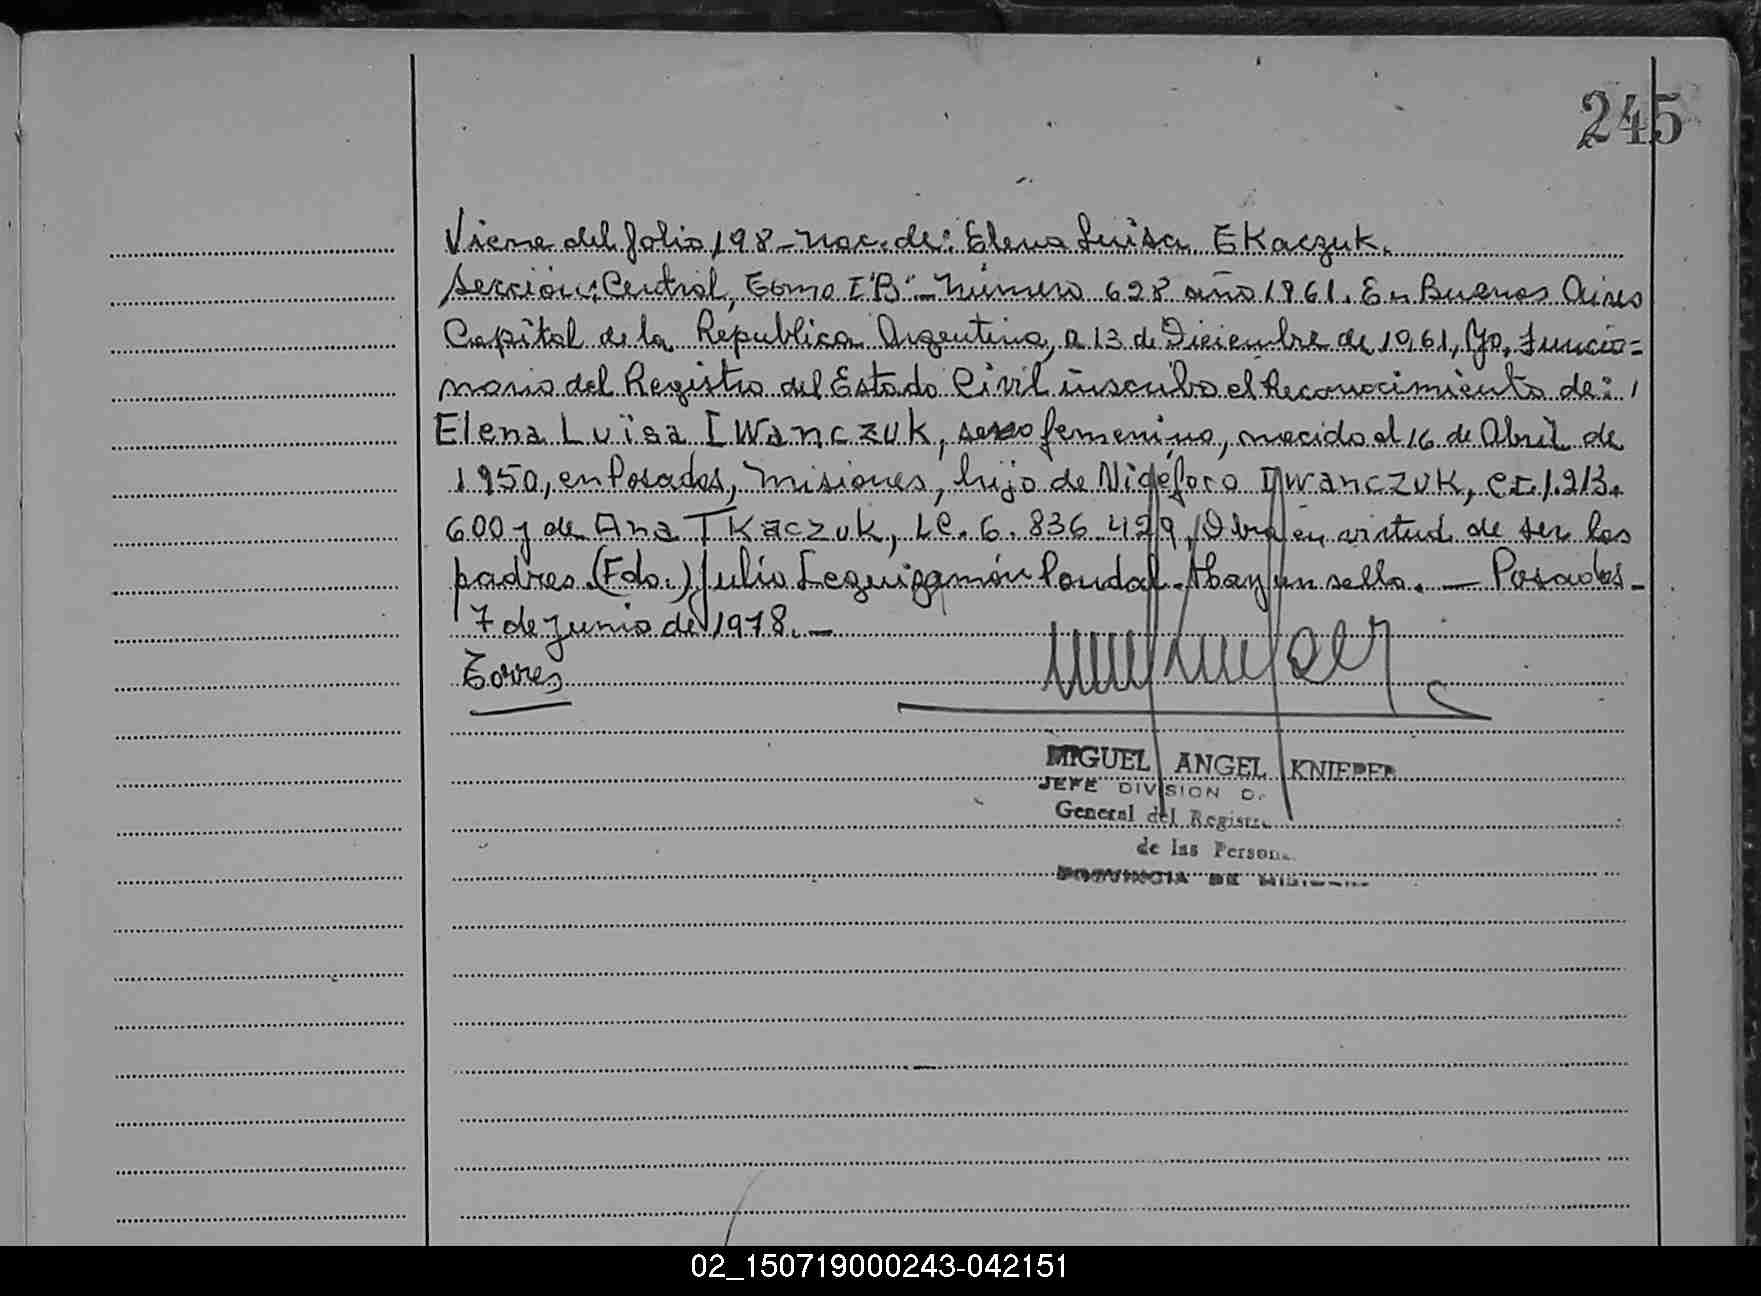 245
Viene del folio 198 - nac. de: Elena Luisa EKaczuk.
Sección: Central, Tomo I "B" - Número 628 año 1961. En Buenos Aires
Capital de la República Argentina, a 13 de Diciembre de 1961, Yo, Funcio=
nario del Registro del Estado Civil inscribo el Reconocimiento de:
Elena Luisa IWanczuk, sexo femenino, nacido el 16 de Abril de
1950, en Posadas, Misiones, hijo de Nigéforo IWanczuk, C.I. 1.213.
600 y de Ana TKaczuk, LC. 6.836.429, Obra en virtud de ser los
padres. (Fdo.) Julio Leguizamón Pondal. Hay un sello. — Posadas -
7 de Junio de 1978. -
Torres
MIGUEL ANGEL KNIEPER
JEFE DIVISION
General del Registro
de las Person
PROVINCIA DE MISIONES
02_150719000243-042151